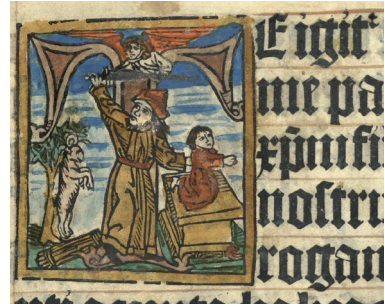 TE igit᷑
me pa
xp̄m fi
nostru
rogam